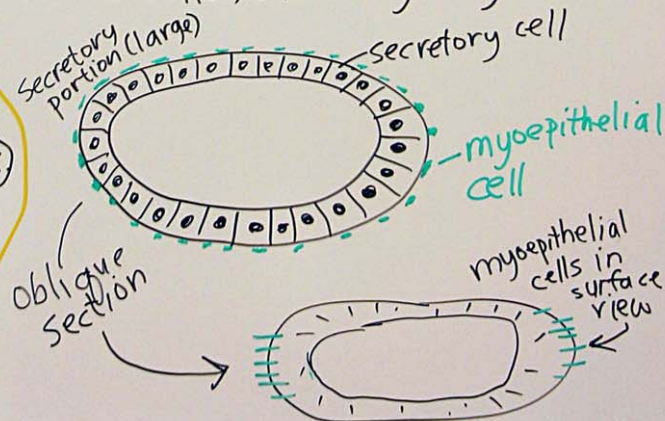 secretory
portion (large)
secretory cell
myoepithelial
cell
oblique
section
myoepithelial
cells in
surface
view